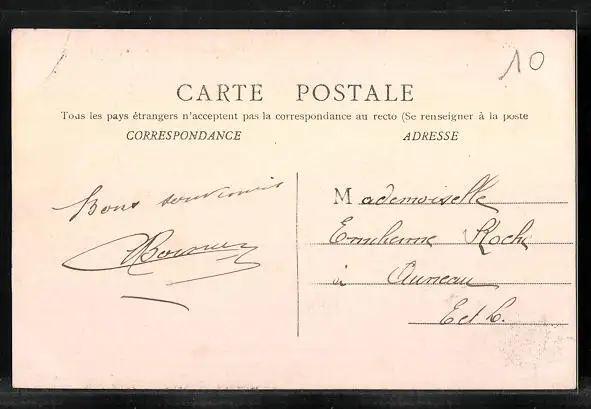 10
CARTE POSTALE
Tous les pays étrangers n'acceptent pas la correspondance au recto (Se renseigner à la poste
CORRESPONDANCE
ADRESSE
Bons souvenirs
Mademoiselle
Roche
à Auneau
E et L.